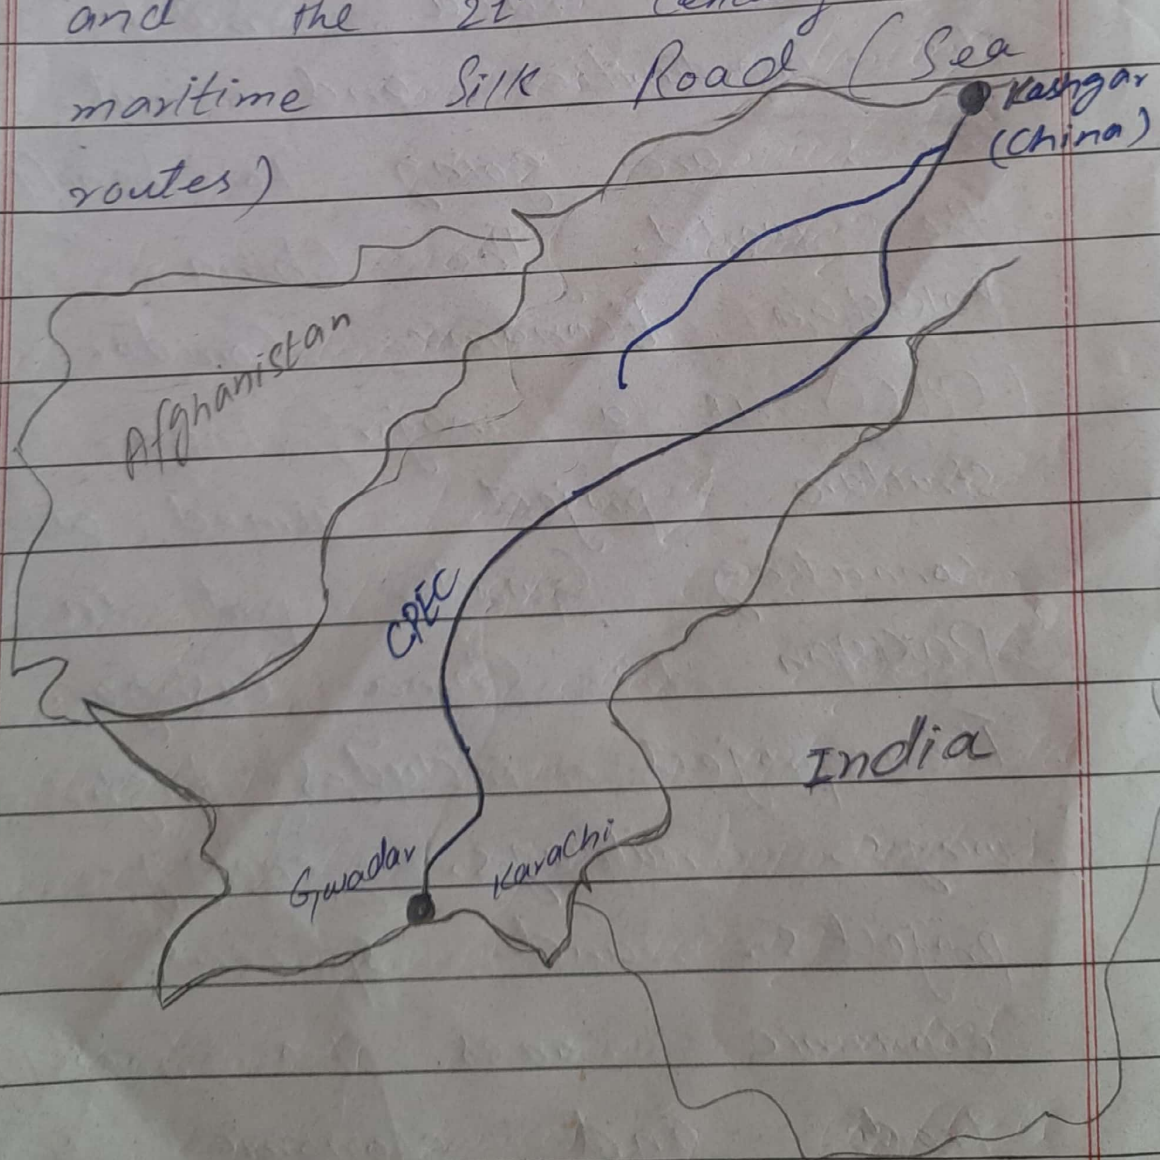 and the 21 century
maritime Silk Road (Sea
routes)
Kashgar
(China)
Afghanistan
CPEC
India
Gwadar
Karachi